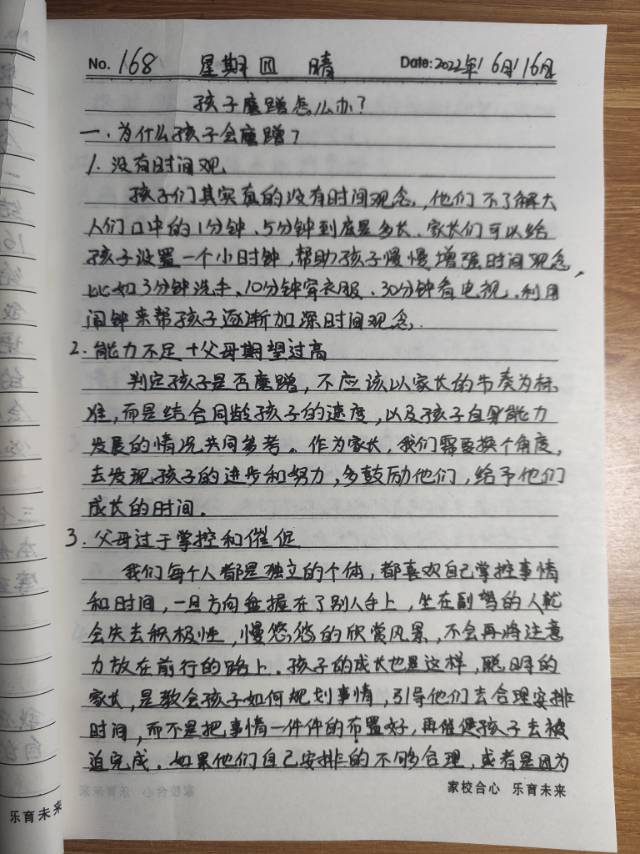 No. 168 星期四 晴 Date: 2022年6月16日
孩子磨蹭怎么办?
一.为什么孩子会磨蹭?
1.没有时间观
孩子们其实真的没有时间观念,他们不了解大
人们口中的1分钟、5分钟到底是多长.家长们可以给
孩子设置一个小时钟,帮助孩子慢慢增强时间观念,
比如3分钟洗手、10分钟穿衣服、30分钟看电视.利用
闹钟来帮孩子逐渐加深时间观念.
2.能力不足+父母期望过高
判定孩子是否磨蹭,不应该以家长的节奏为标
准,而是结合同龄孩子的速度,以及孩子自身能力
发展的情况共同参考。作为家长,我们需要换个角度,
去发现孩子的进步和努力,多鼓励他们,给予他们
成长的时间.
3.父母过于掌控和催促
我们每个人都是独立的个体,都喜欢自己掌控事情
和时间,一旦方向盘握在了别人手上,坐在副驾的人就
会失去积极性,慢悠悠的欣赏风景,不会再将注意
力放在前行的路上.孩子的成长也是这样,聪明的
家长,是教会孩子如何规划事情,引导他们去合理安排
时间,而不是把事情一件件的布置好,再催促孩子去被
迫完成.如果他们自己安排的不够合理,或者是因为
家校合心 乐育未来
乐育未来